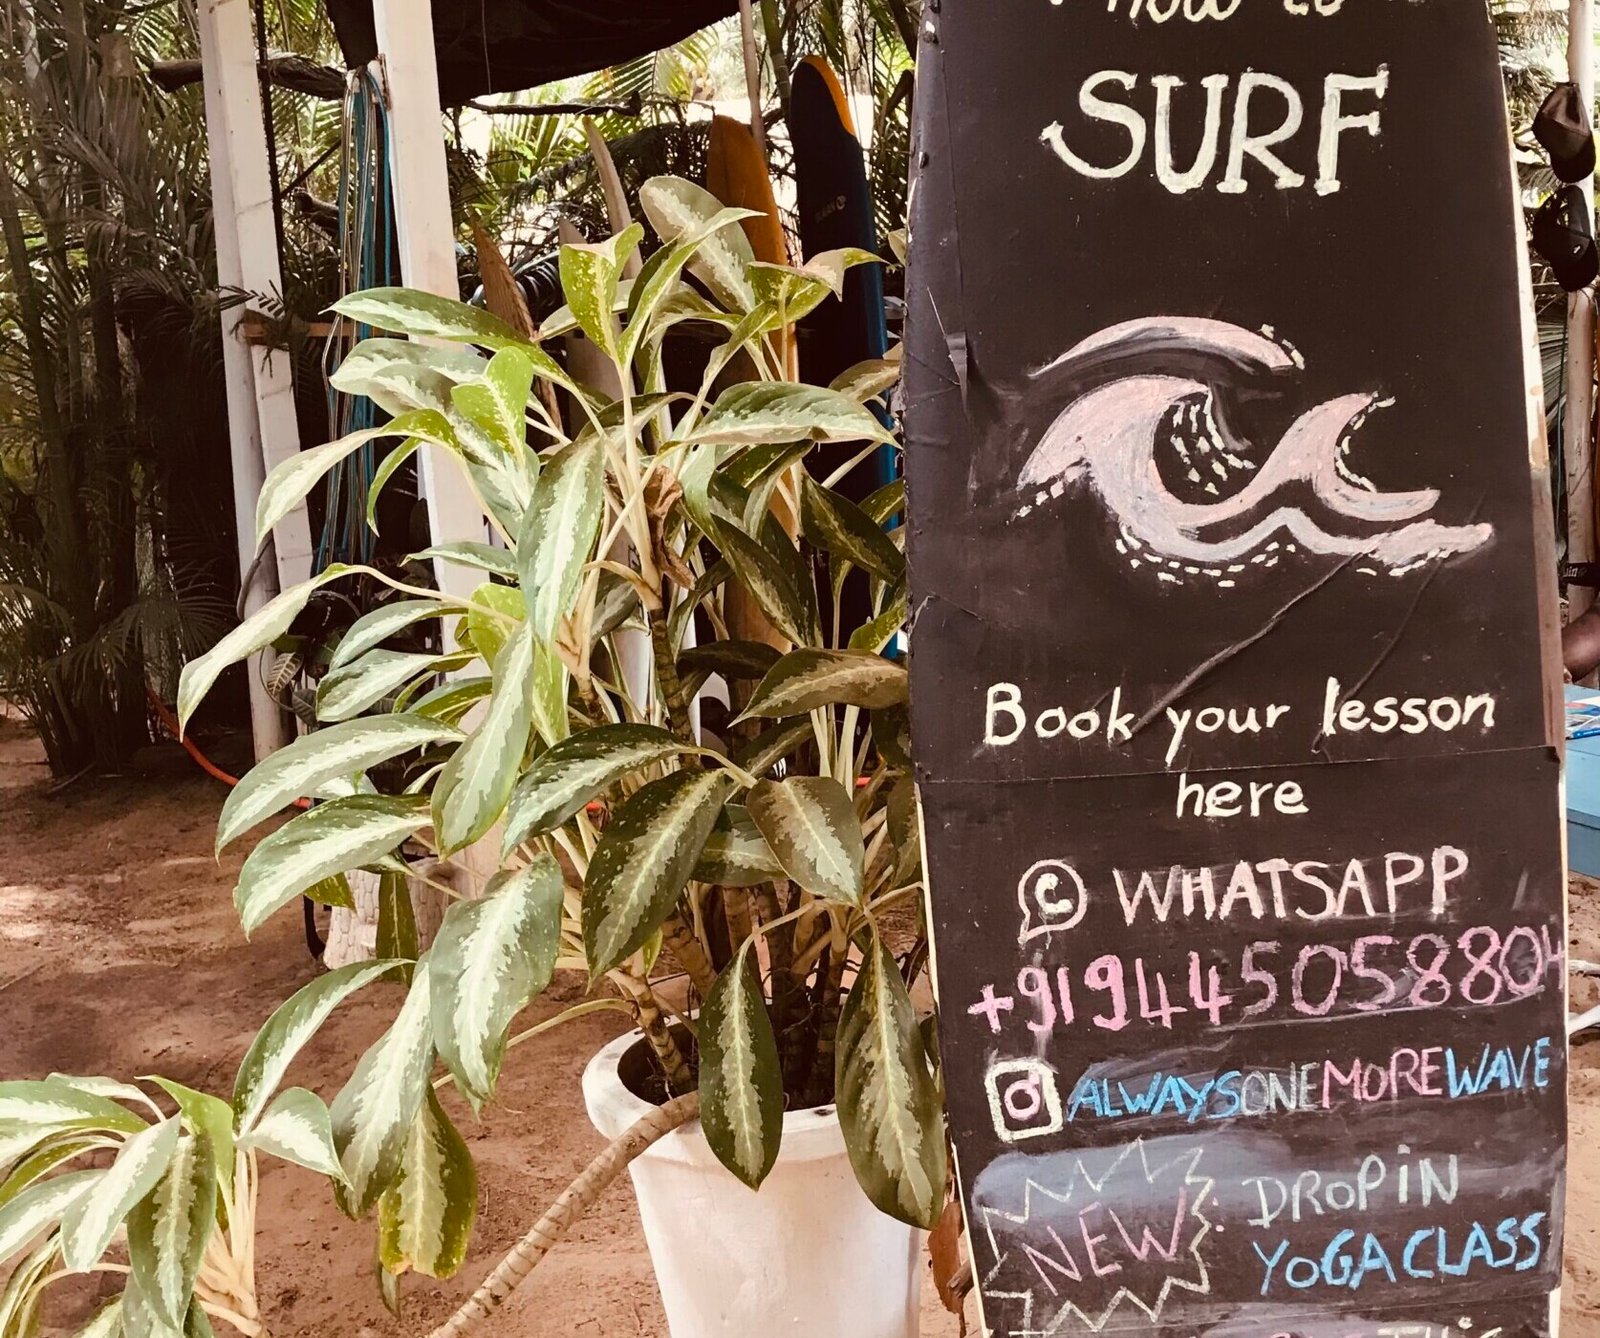 How to
SURF
Book your lesson
here
WHATSAPP
+919445058804
ALWAYSONEMOREWAVE
NEW: DROP IN
YOGA CLASS